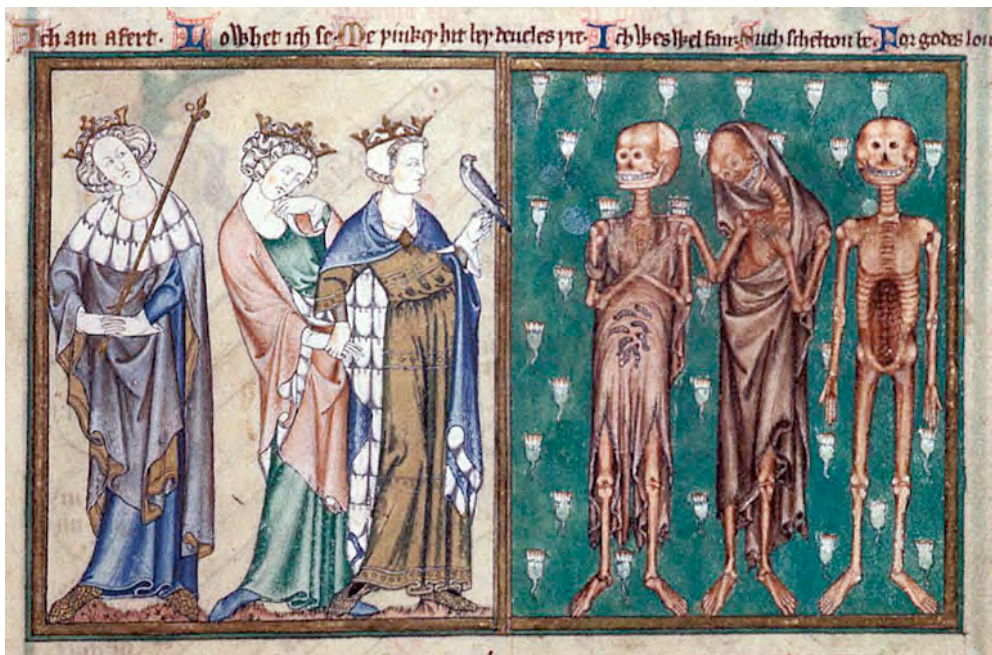 Ich am afert. Lo whet ich se. Me þinkeþ hit beþ deueles þre. Ich wes wel fair. Such scheltou be. For godes